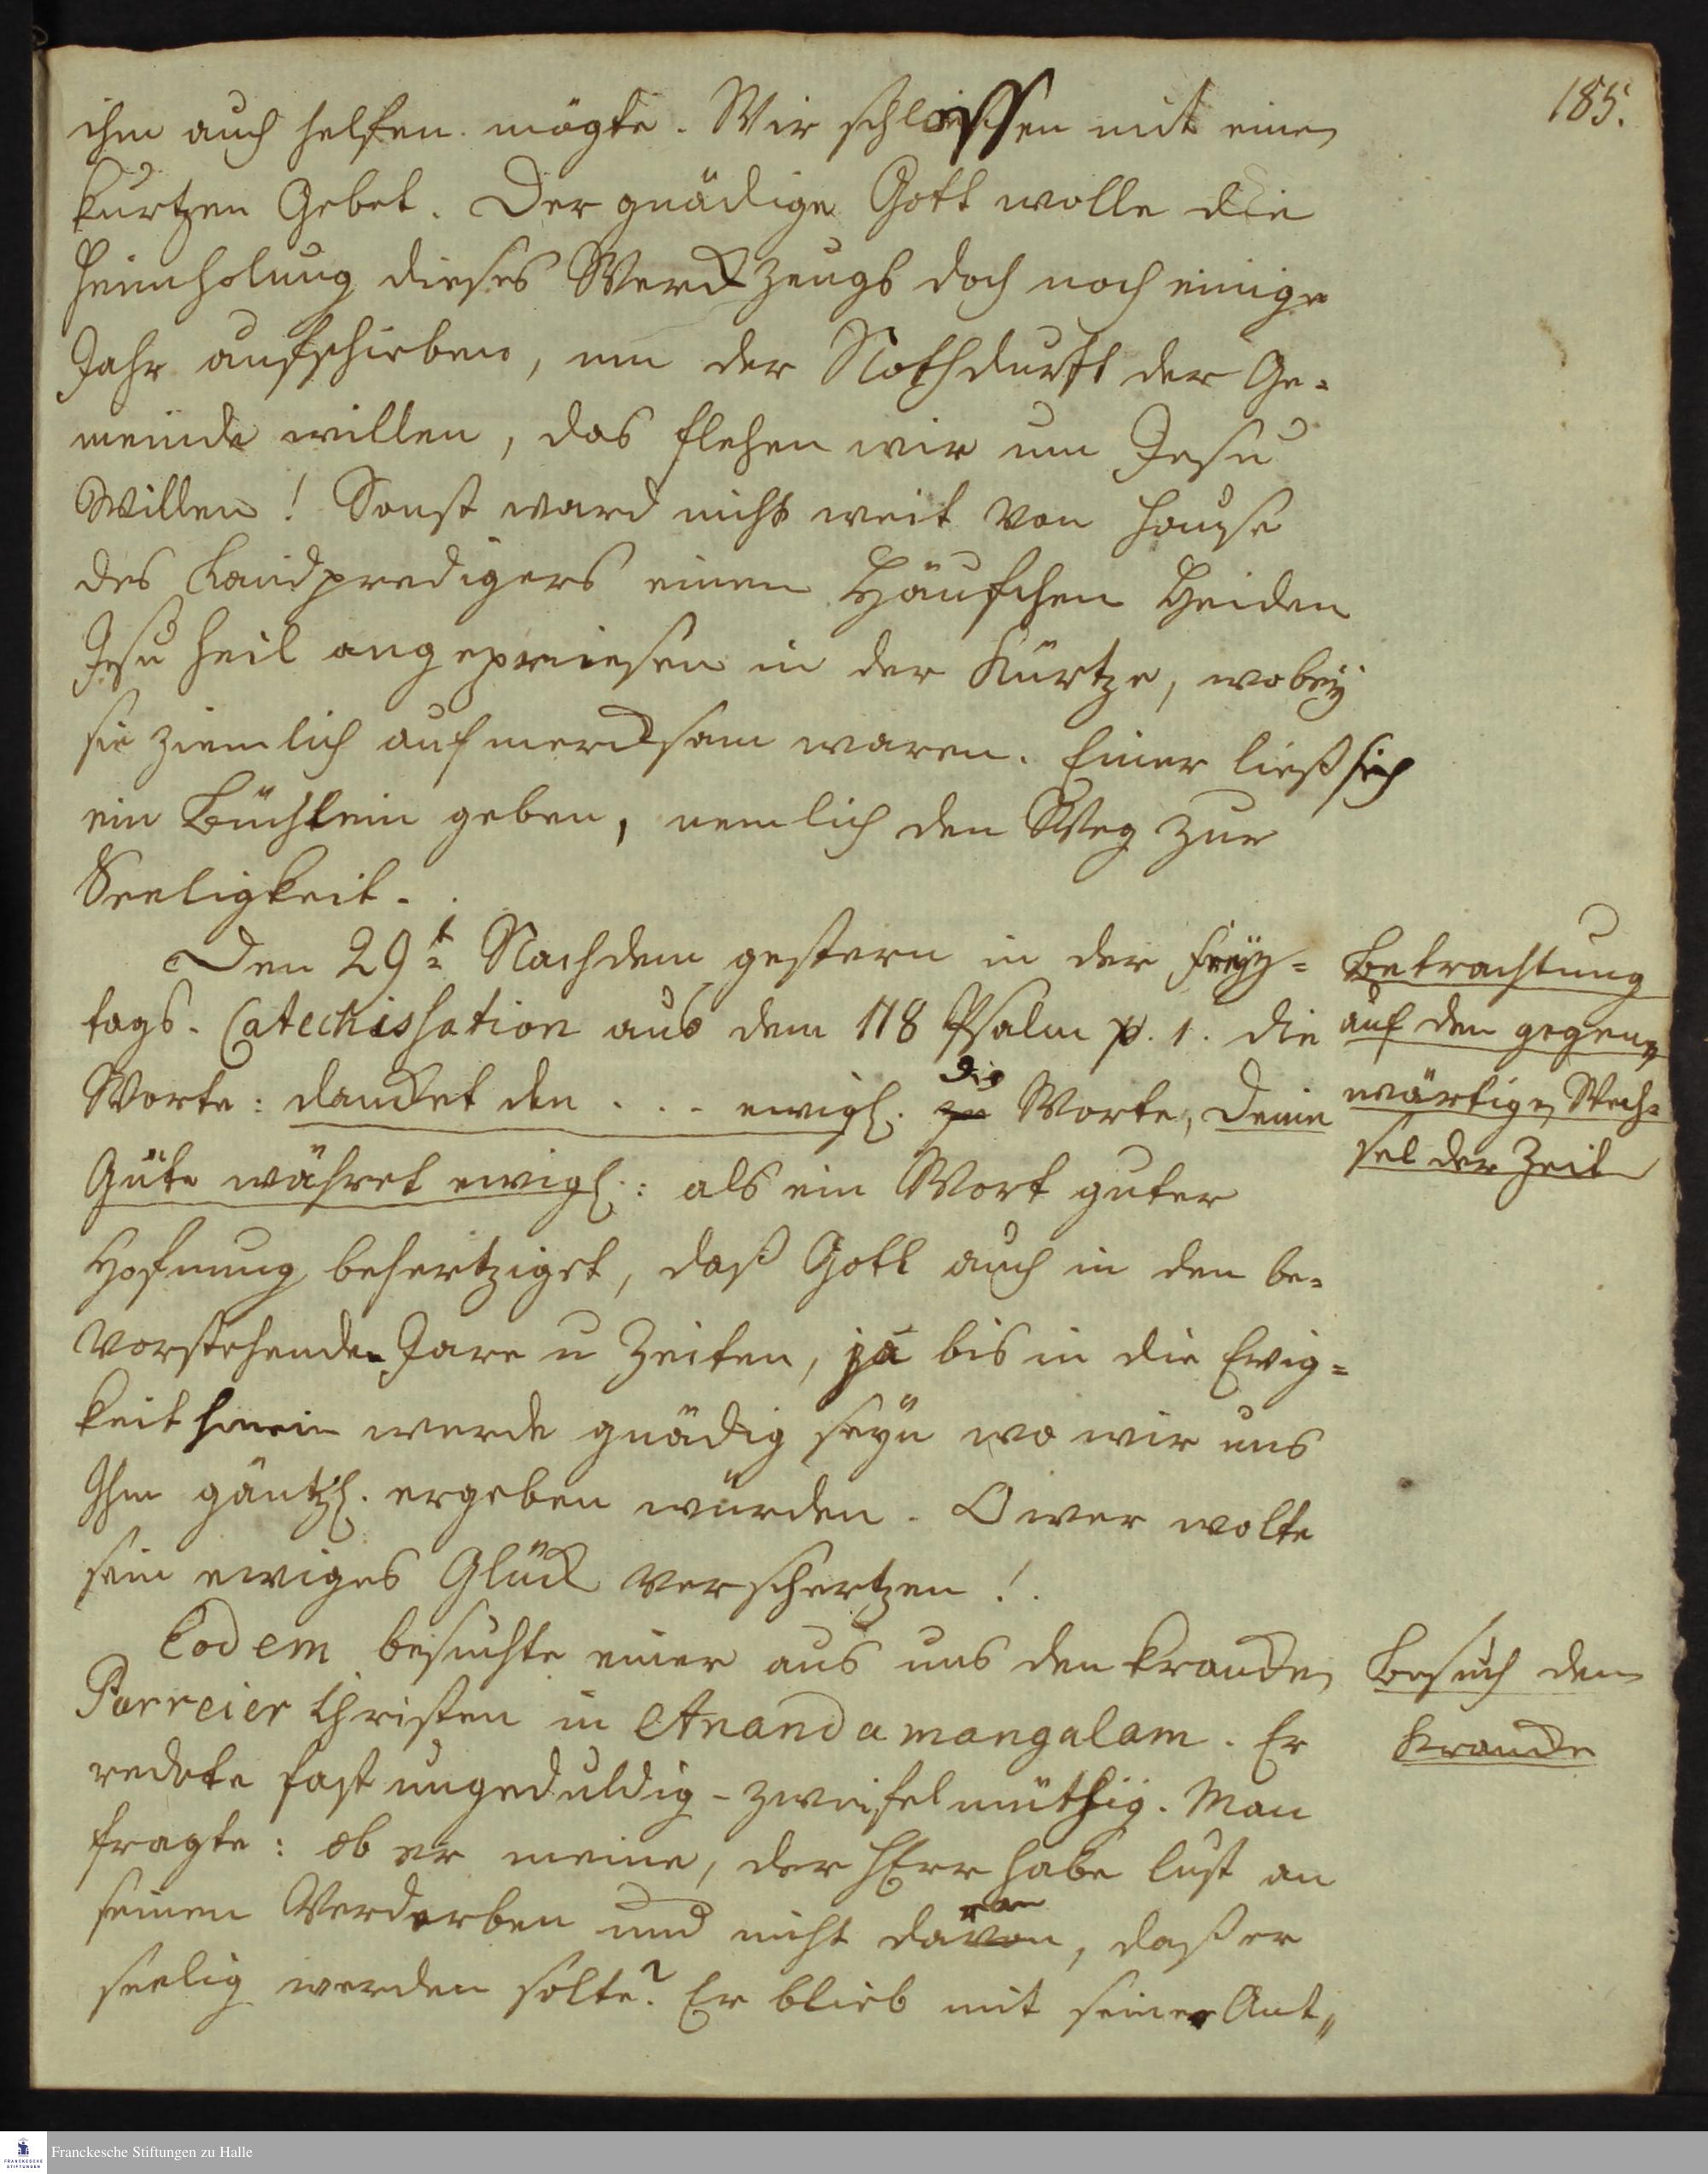 185.
ihm auch helfen mögte. Wir schlossen mit einem
kurtzen Gebet. Der gnädige Gott wolle die
Heimholung dieses Werckzeugs doch noch einige
Jahr aufschieben, um der Nothdurft der Ge-
meinde willen, das flehen wir um Jesu
Willen! Sonst ward nicht weit von Hause
des Landpredigers einem Häufchen Heiden
Jesu Heil angepriesen in der Kürtze, wobey
sie ziemlich aufmercksam waren. Einer ließ sich
ein Büchlein geben, nemlich den Weg zur
Seeligkeit.
Den 29t. Nachdem gestern in der Frey-
tags-Catechisation aus dem 118 Psalm p. 1. die
Worte: dancket den . . . ewigl. die Worte, Deine
Güte währet ewigl.: als ein Wort guter
Hofnung behertziget, daß Gott auch in den be-
vorstehenden Jare u Zeiten, ja bis in die Ewig-
keit hinein werde gnädig seyn wo wir uns
Ihm gäntzl. ergeben würden. O wer wolte
sein ewiges Glück verschertzen!
Betrachtung
auf den gegen-
wärtigen Wech-
sel der Zeit
Eodem besuchte einer aus uns den krancken
Parreier Christen in Anandamangalam. Er
redete fast ungeduldig-zweifelmüthig. Man
fragte: ob er meine, der HErr habe lust an
seinem Verderben und nicht daran, daß er
seelig werden solte? Er blieb mit seiner Ant„
Besuch dem
Krancke
Franckesche Stiftungen zu Halle